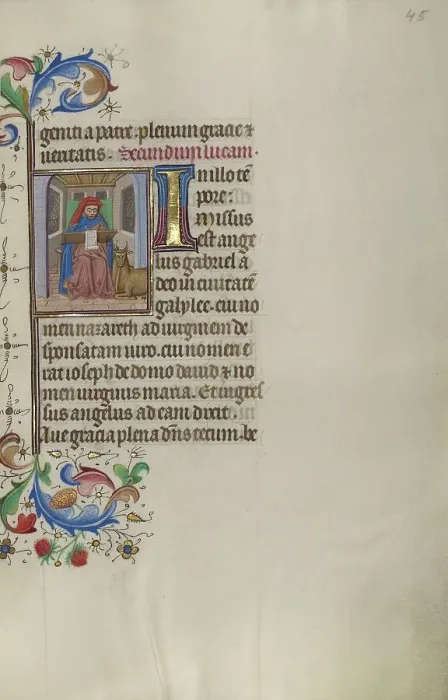 45
geniti a patre. plenum gracie ⁊
ueritatis. Secundum lucam.
In illo tē
pore:
missus
est ange
lus gabriel a
deo in ciuitatē
galylee. cui no
men nazareth ad uirginem de
sponsatam uiro. cui nomen e
rat ioseph de domo dauid ⁊ no
men uirginis maria. Et ingres
sus angelus ad eam dixit.
Aue gracia plena dn̄s tecum. be